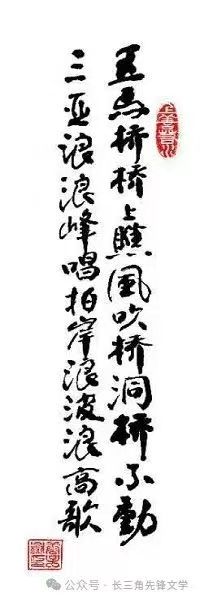 五马桥桥上瞧风吹桥洞桥不動
三亚浪浪峰唱拍岸浪波浪高歌
上善若水
公众号·长三角先锋文学